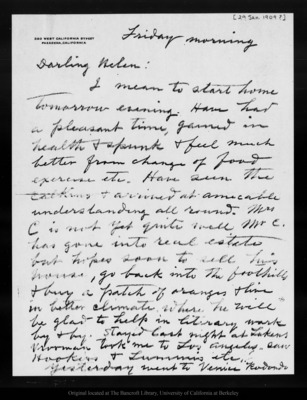 [29 Jan 1909?]
PASADENA, CALIFORNIA
Friday morning
Darling Helen:
I mean to start home
tomorrow evening. Have had
a pleasant time, gained in
health & spunk & feel much
better from change of food
exercise etc. Have seen the
& arrived at amicable
understanding all round. Mrs
C is not yet quite well Mr C.
has gone into real estate
but hopes soon to sell his
house, go back into the foothills
& buy a patch of oranges & live
in better climate where he will
be glad to help in library work
by & by. Stayed last night at
Vroman took me to Los Angeles. saw
Hookers & Lummis etc.
Yesterday went to Venice Redondo
Original located at The Bancroft Library, University of California at Berkeley